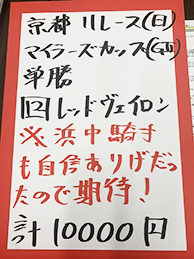 京都11レース(日)
マイラーズカップ(GⅡ)
単勝
12 レッドヴェイロン
※浜中騎手
も自信ありげだっ
たので期待!
計10000円